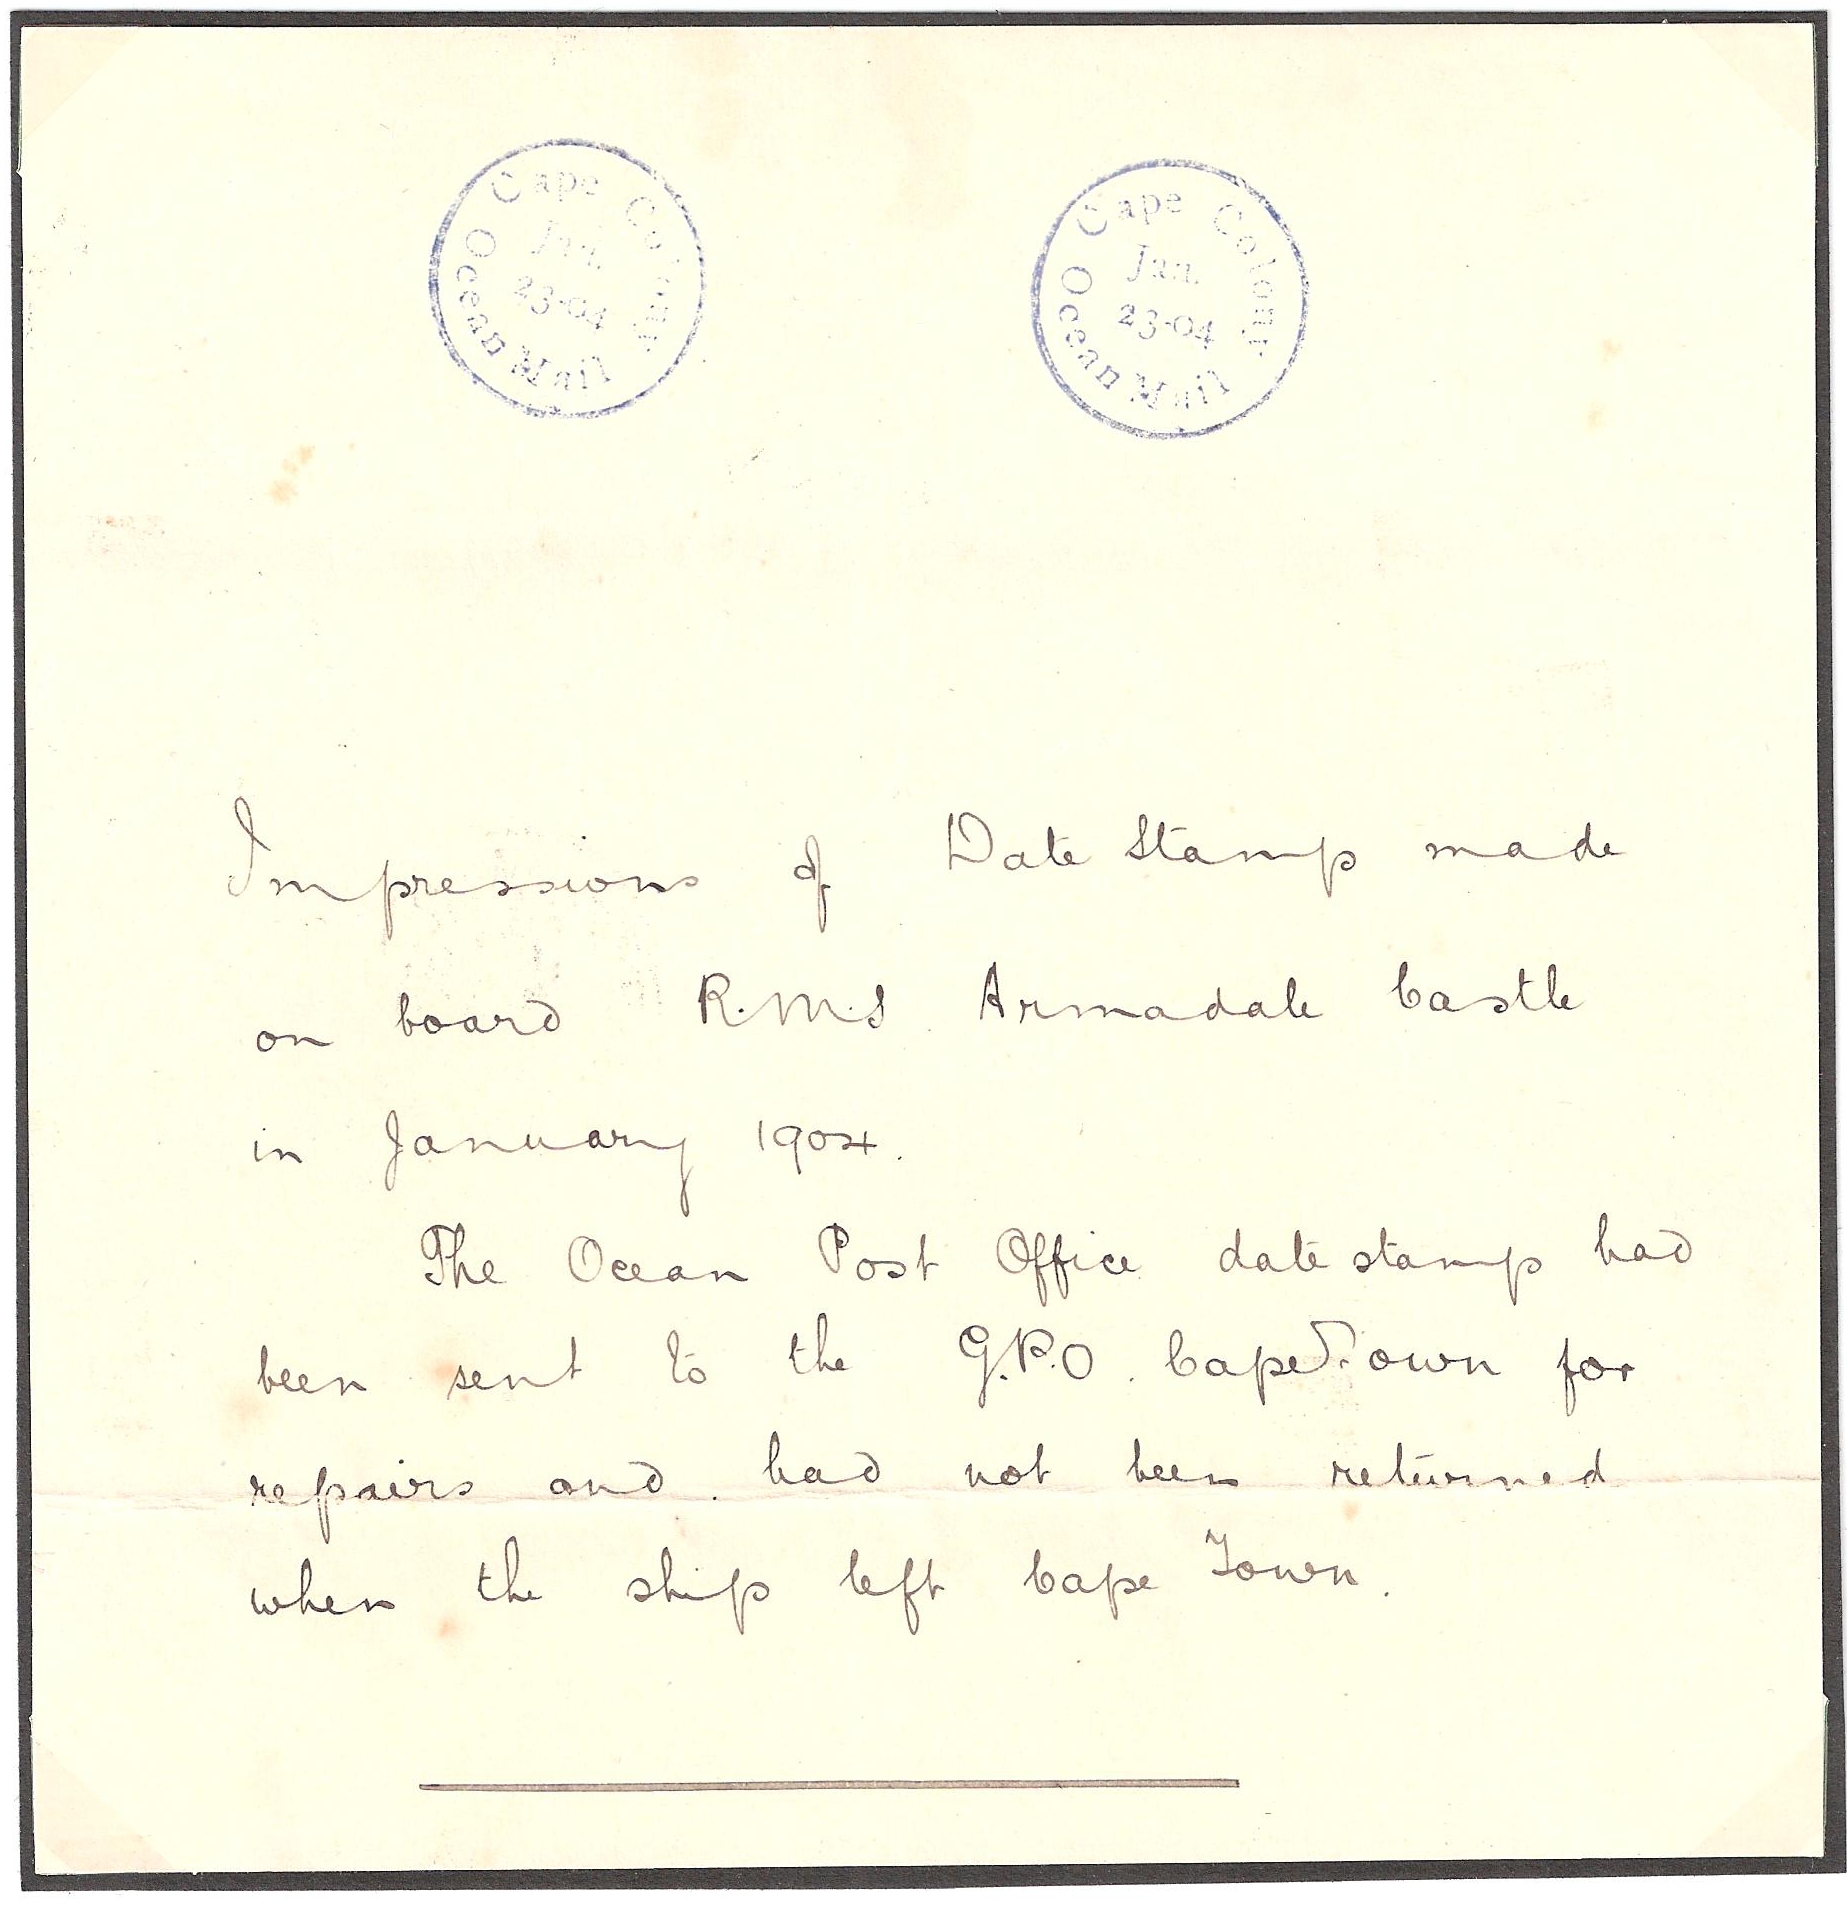 Cape Colony
Jan.
23-04
Ocean Mail
Cape Colony
Jan.
23-04
Ocean Mail
Impressions of Date Stamp made
on board R.M.S. Armadale Castle
in January 1904.
The Ocean Post Office date stamp had
been sent to the G.P.O. Cape Town for
repairs and had not been returned
when the ship left Cape Town.